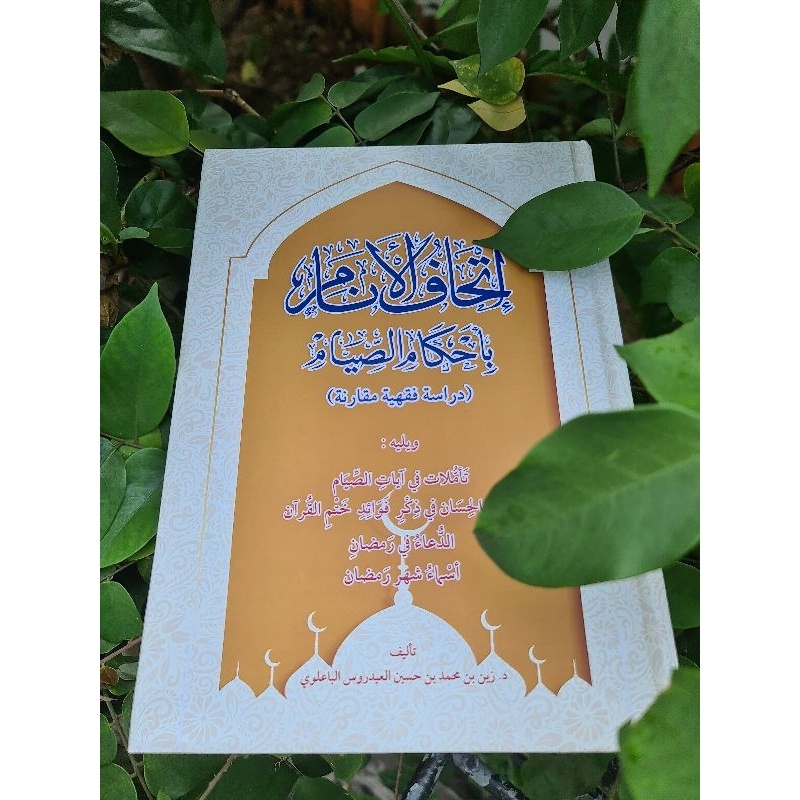 إِتْحَافُ الْأَنَامِ
بِأَحْكَامِ الصِّيَامِ
(دراسة فقهية مقارنة)
ويليه :
تَأَمُّلَات فِي آيَاتِ الصِّيَامِ
الحِسَان فِي ذِكْرِ فَوَائِدِ خَتْمِ القُرْآن
الدُّعَاءُ فِي رَمضَانِ
أَسْمَاءُ شهْر رَمضان
تأليف
د. زين بن محمد بن حسين العيدروس الباعلوي